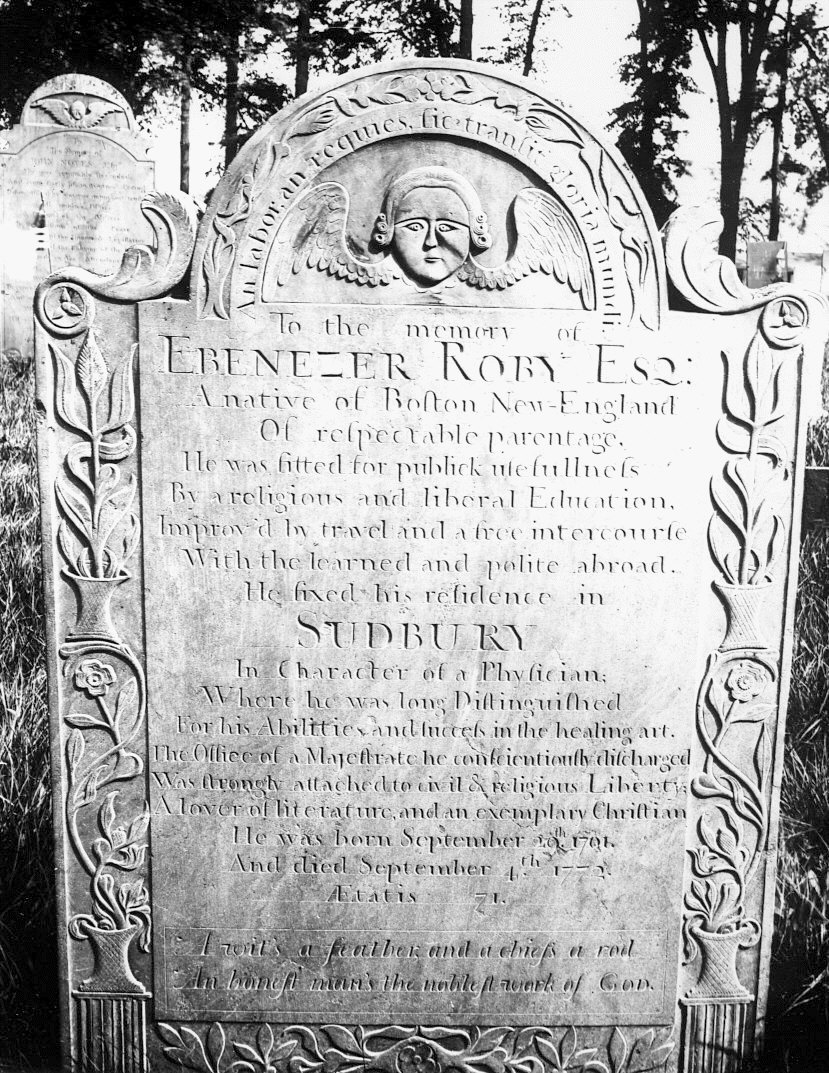 An labor, an requies, sic transit gloria mundi.
To the memory of
EBENEZER ROBY ESQ:
A native of Boſton New-England
Of reſpectable parentage,
He was fitted for publick uſefullneſs
By a religious and liberal Education,
Improv'd by travel and a free intercourſe
With the learned and polite abroad.
He fixed his reſidence in
SUDBURY
In Character of a Phyſician;
Where he was long Diſtinguiſhed
For his Abilities and ſucceſs in the healing art.
The Office of a Majeſtrate he conſcientiouſly diſcharged
Was ſtrongly attached to civil & religious Liberty,
A lover of literature, and an exemplary Chriſtian
He was born September 20th 1701.
And died September 4th 1772.
Ætatis 71.
A wit's a feather, and a chiefs a rod
An honeſt man's the nobleſt work of GOD.